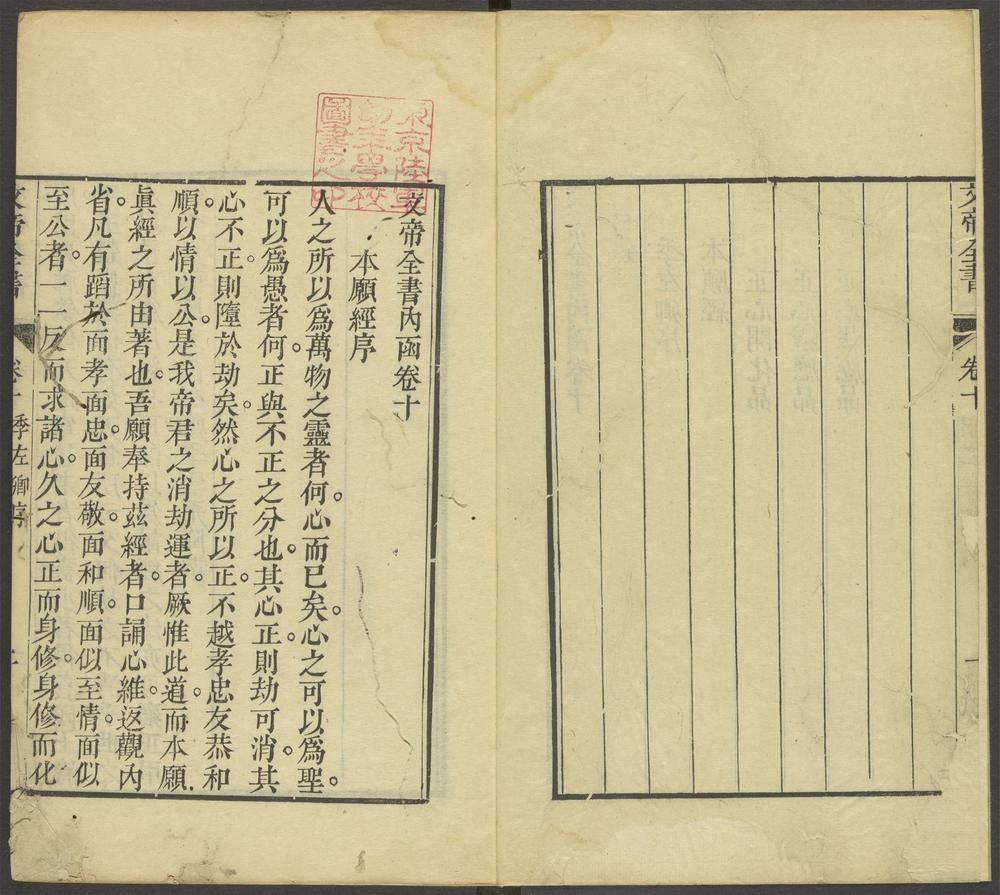 文帝全書
卷十
東京陸軍
幼年學校
圖書之印
文帝全書內函卷十
本願經序
人之所以爲萬物之靈者何。心而已矣。心之可以爲聖。
可以爲愚者何。正與不正之分也。其心正。則劫可消。其
心不正。則墮於劫矣。然心之所以正。不越孝忠友恭和
順。以情以公。是我帝君之消劫運者。厥惟此道。而本願
眞經之所由著也。吾願奉持茲經者。口誦心維。返觀內
省。凡有蹈於面孝面忠。面友敬。面和順。面似至情。面似
至公者。一一反而求諸心。久之心正而身修。身修而化
文帝全書
卷十
季左卿序